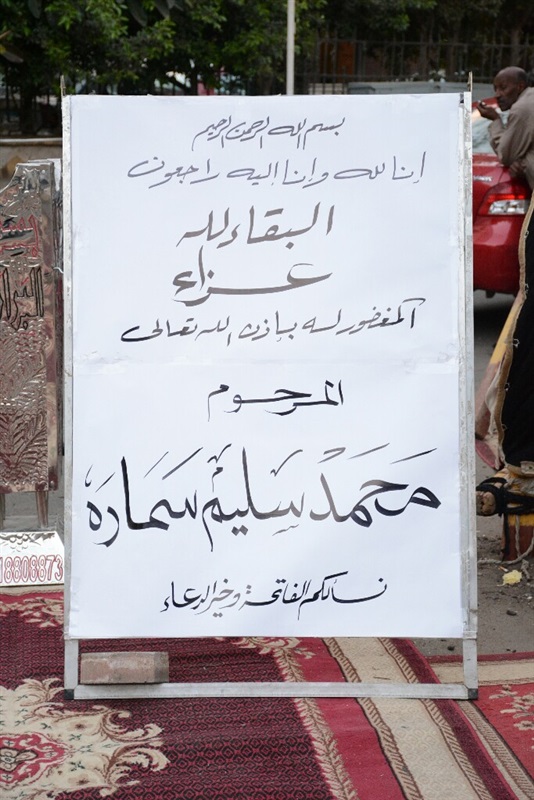 بسم الله الرحمن الرحيم
إنا لله وإنا إليه راجعون
البقاء لله
عزاء
المغفور له بإذن الله تعالى
المرحوم
محمد سليم سماره
نسألكم الفاتحة وخير الدعاء
18808873